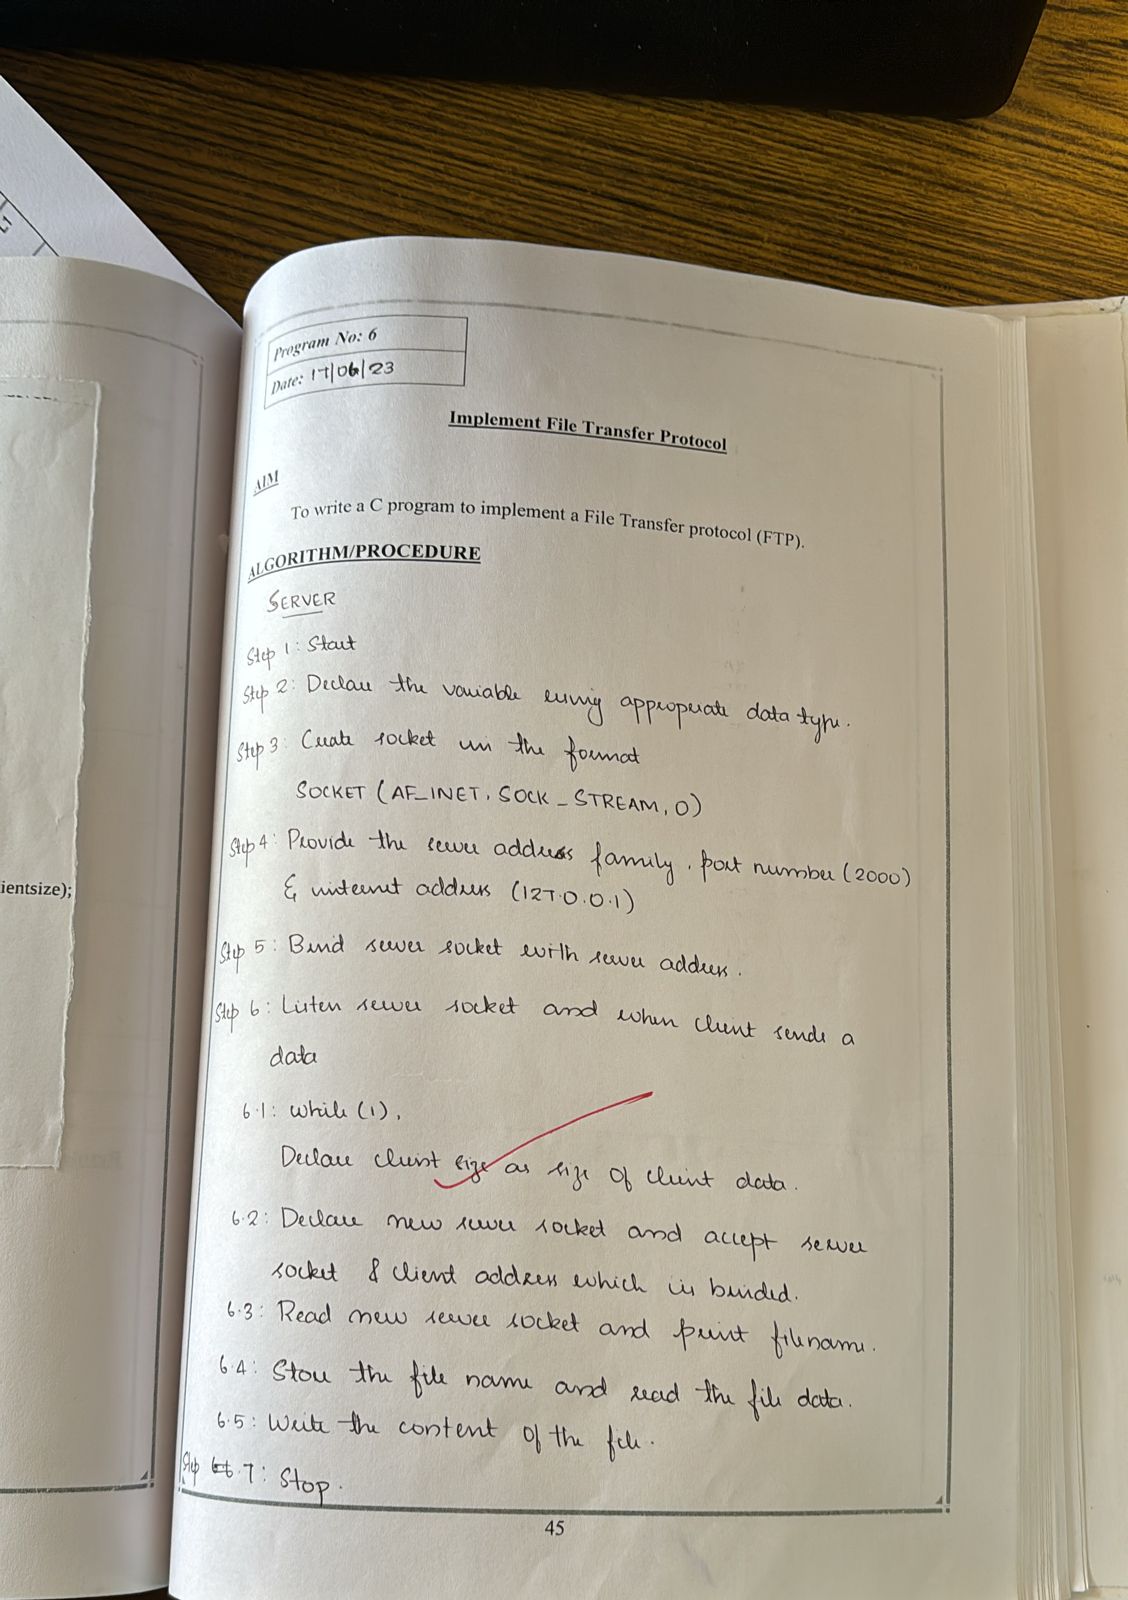 ientsize);
Program No: 6
Date: 17/06/23
Implement File Transfer Protocol
AIM
To write a C program to implement a File Transfer protocol (FTP).
ALGORITHM/PROCEDURE
SERVER
Step 1: Start
Step 2: Declare the variable using appropriate data type.
Step 3: Create socket in the format
SOCKET (AF_INET, SOCK_STREAM, 0)
Step 4: Provide the server address family, port number (2000)
& internet address (127.0.0.1)
Step 5: Bind server socket with server address.
Step 6: Listen server socket and when client sends a
data
6.1: while (1),
Declare client size as size of client data.
6.2: Declare new server socket and accept server
socket & client address which is binded.
6.3: Read new server socket and print filename.
6.4: Store the file name and read the file data.
6.5: Write the content of the file.
Step 7: Stop.
45